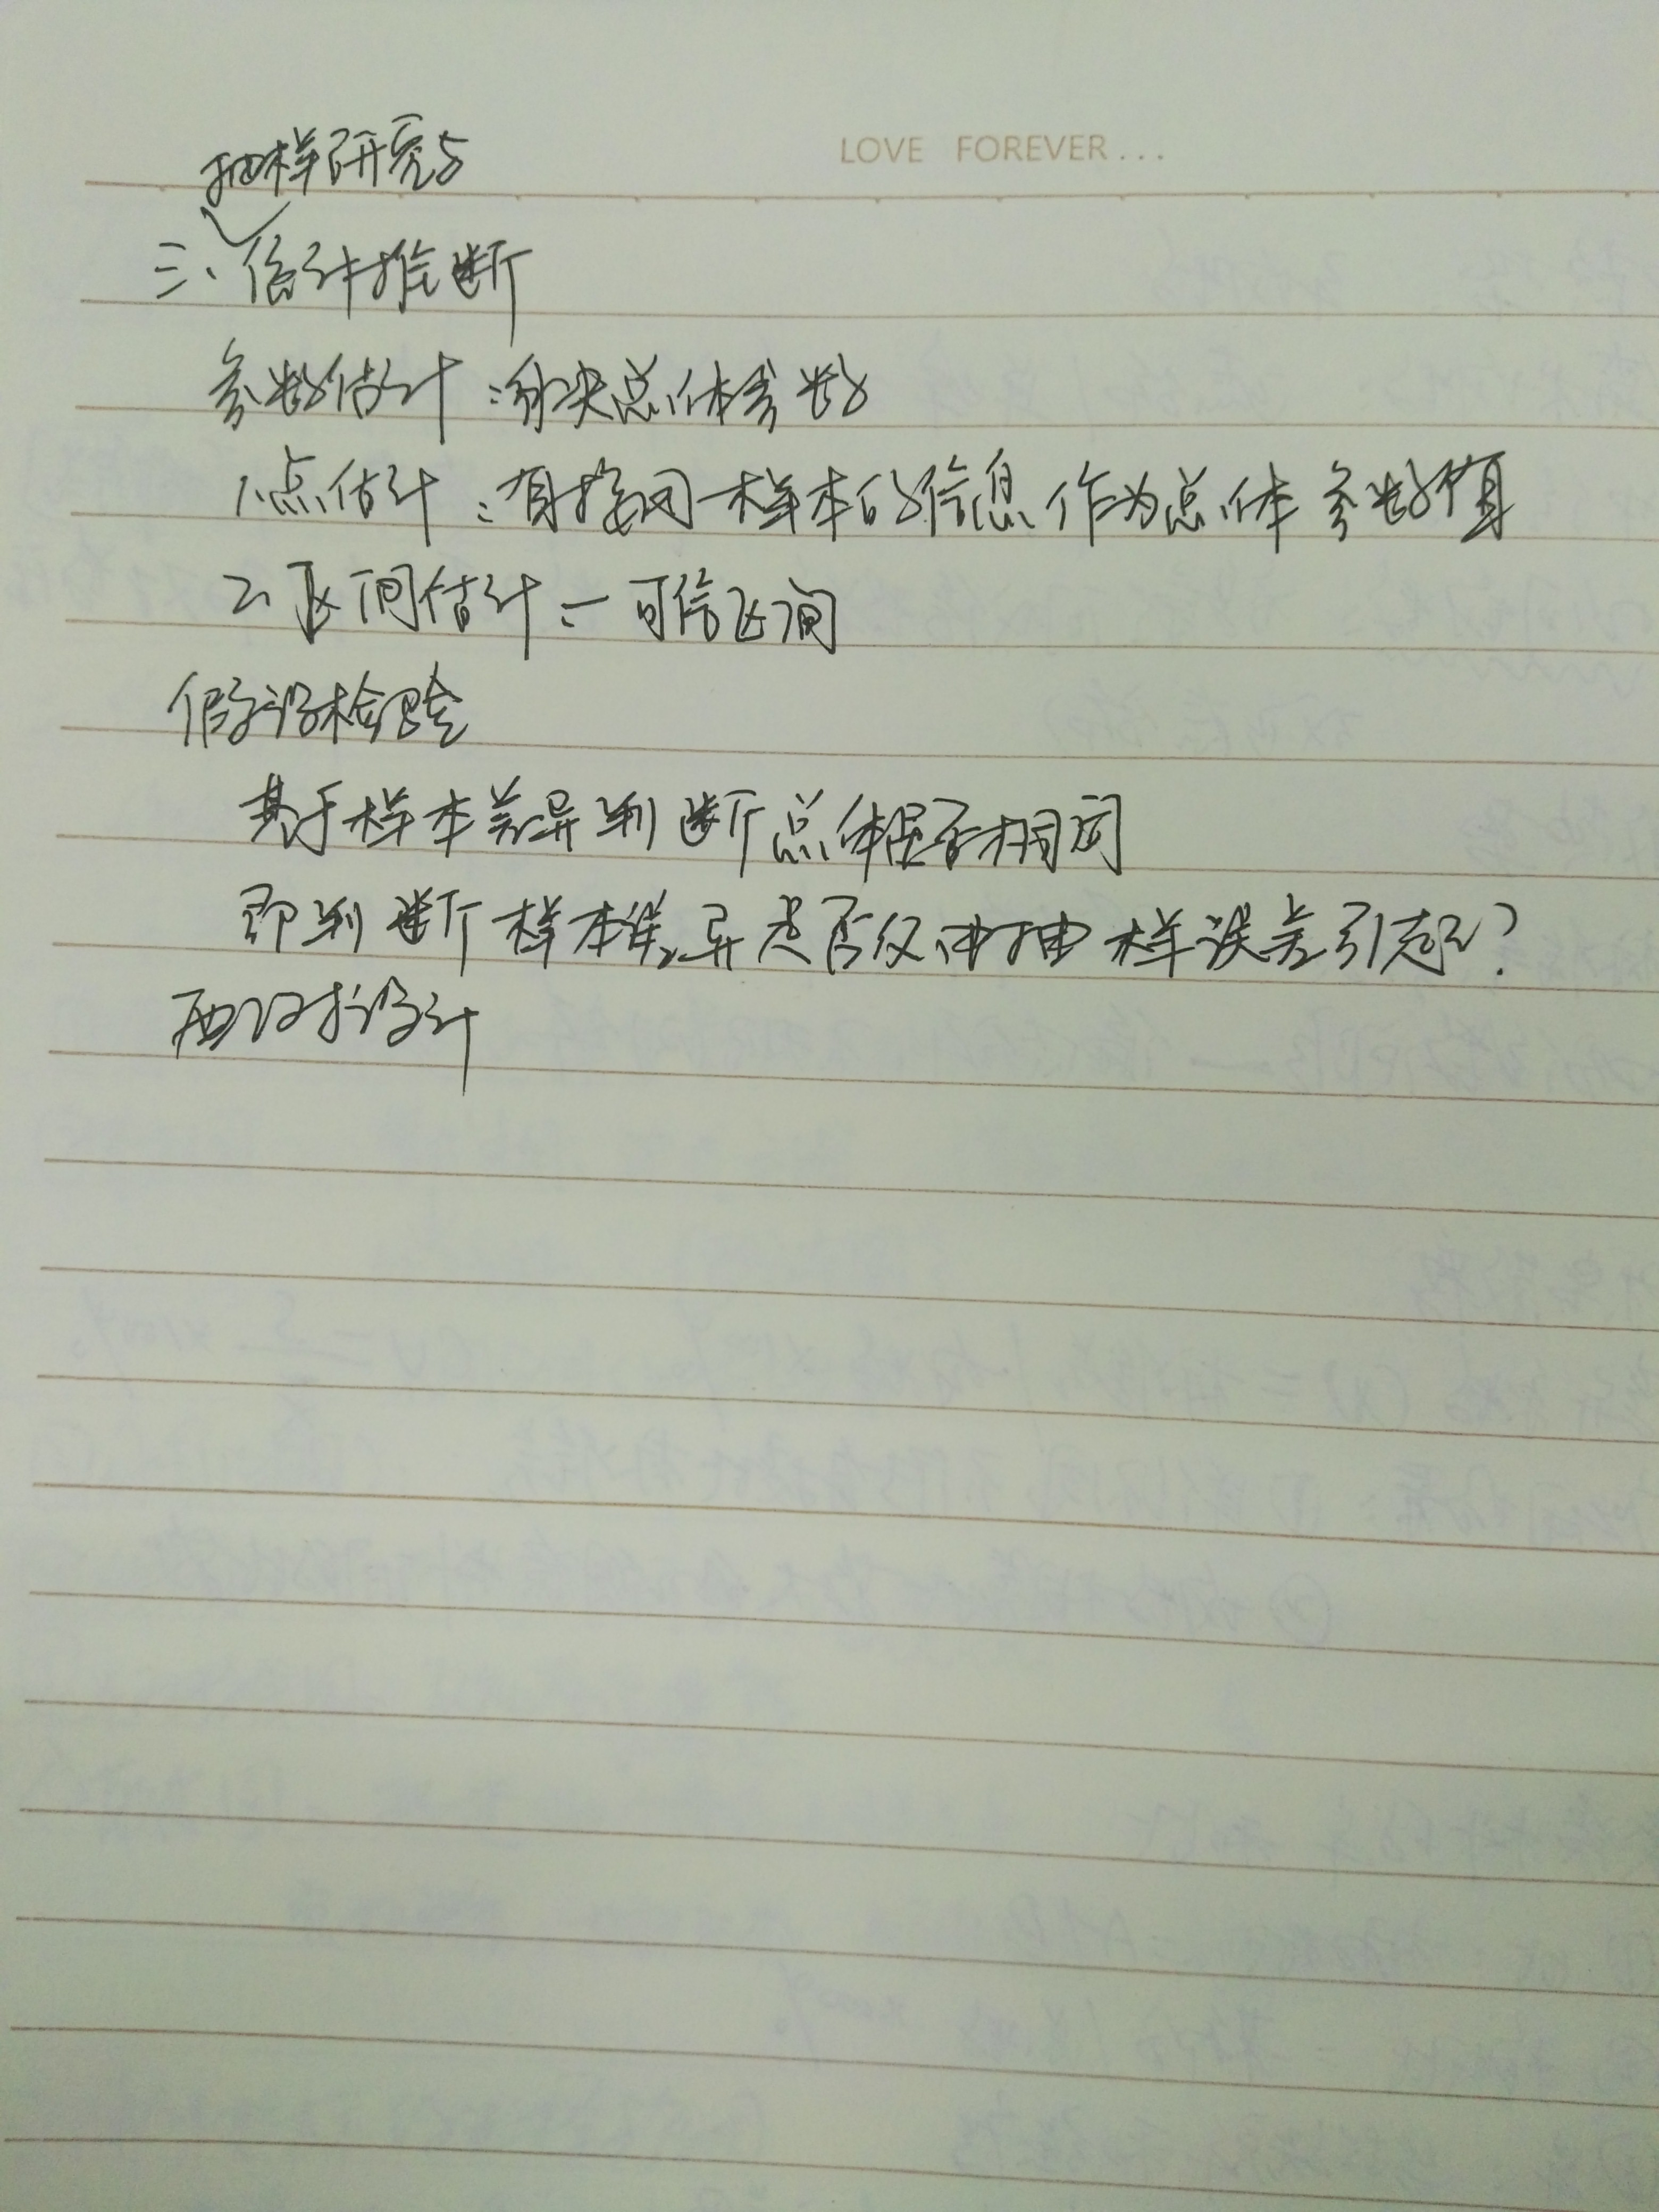 LOVE FOREVER...
抽样研究与
三、估计推断
参数估计：解决总体参数
1、点估计：直接用一样本的信息作为总体参数值
2、区间估计：一可信区间
假设检验
基于样本差异判断总体是否相同
即判断样本差异是否仅由抽样误差引起？
配对设计